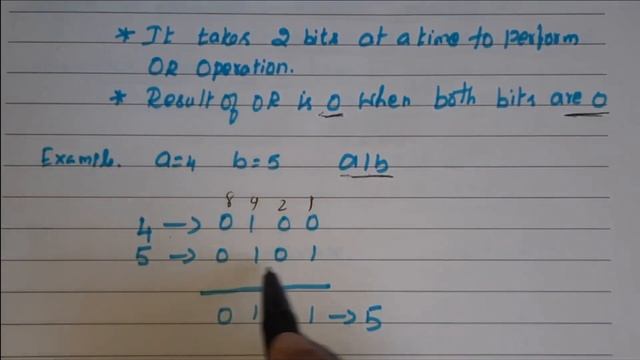 * It takes 2 bits at a time to perform
OR Operation.
* Result of OR is 0 when both bits are 0
Example. a=4 b=5 a|b
8 4 2 1
4 -> 0 1 0 0
5 -> 0 1 0 1
0 1 1 -> 5